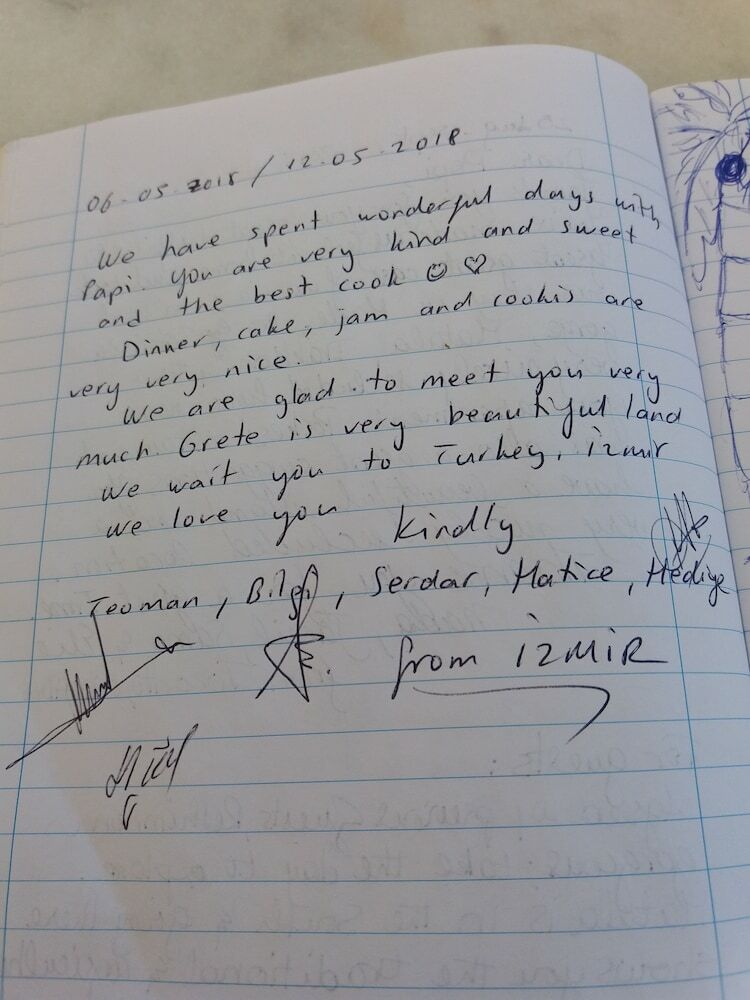 06.05.2018 / 12.05.2018
We have spent wonderful days with
Papi. You are very kind and sweet
and the best cook ☺ ♡
Dinner, cake, jam and cookis are
very very nice.
We are glad to meet you very
much. Grete is very beautiful land
we wait you to Turkey, izmir
we love you Kindly
Teoman, Bilgi, Serdar, Hatice, Hediye
from izMiR